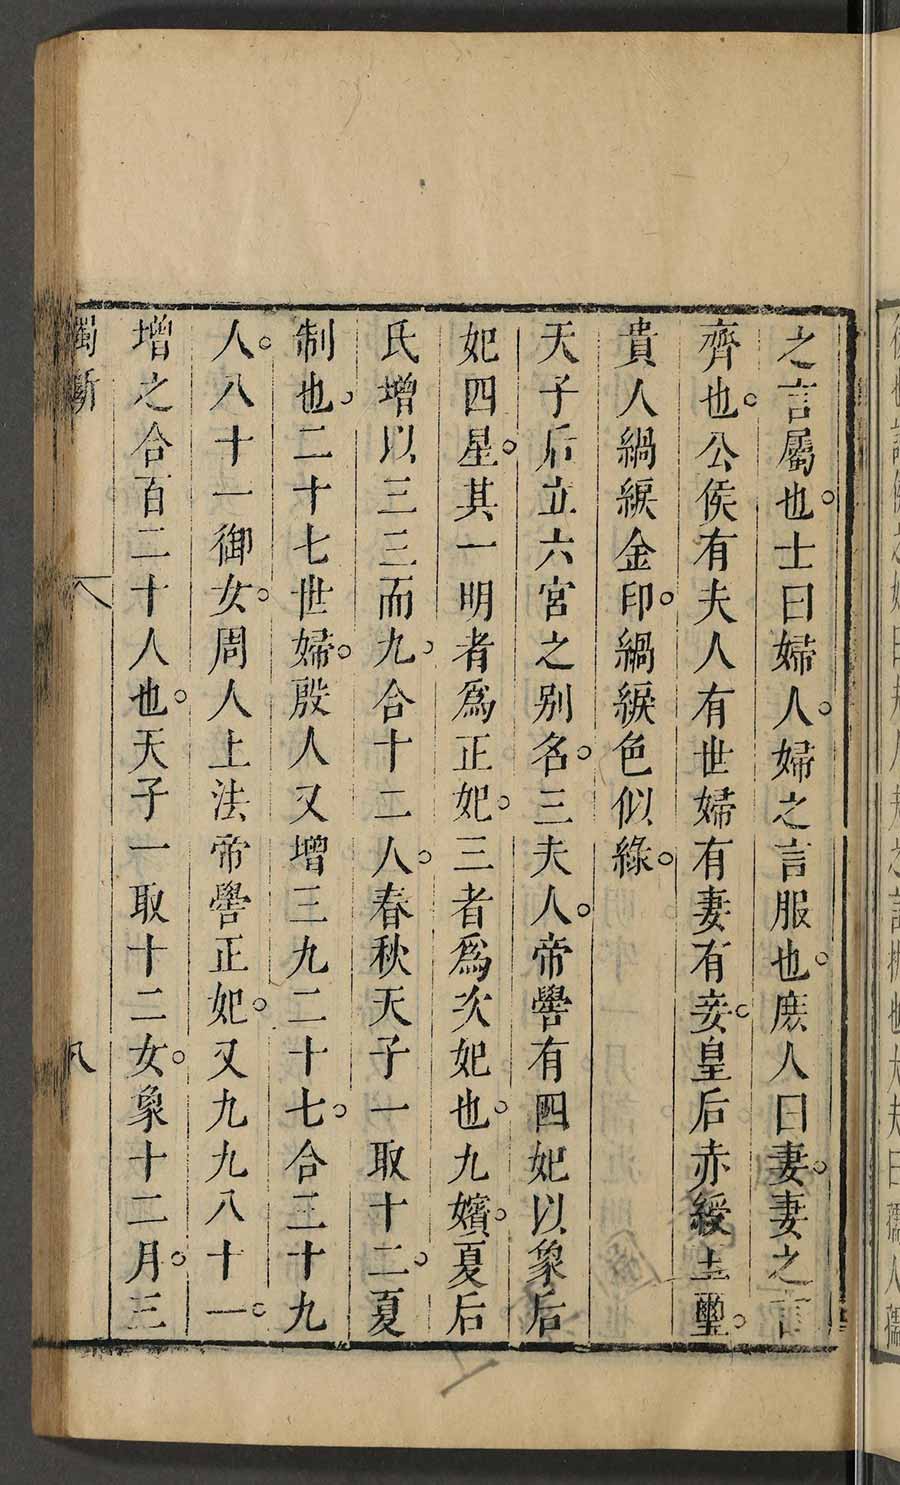 之言屬也。士曰婦人。婦之言服也。庶人曰妻。妻之言
齊也。公侯有夫人有世婦有妻有妾。皇后赤綬玉璽。
貴人緺綟金印。緺綟色似綠。
天子后立六宮之别名。三夫人。帝嚳有四妃以象后
妃四星。其一明者爲正妃。三者爲次妃也。九嬪。夏后
氏增以三三而九。合十二人。春秋天子一取十二。夏
制也。二十七世婦。殷人又增三九二十七。合三十九
人。八十一御女。周人上法帝嚳正妃。又九九八十一。
增之合百二十人也。天子一取十二女。象十二月。三
獨斷
八